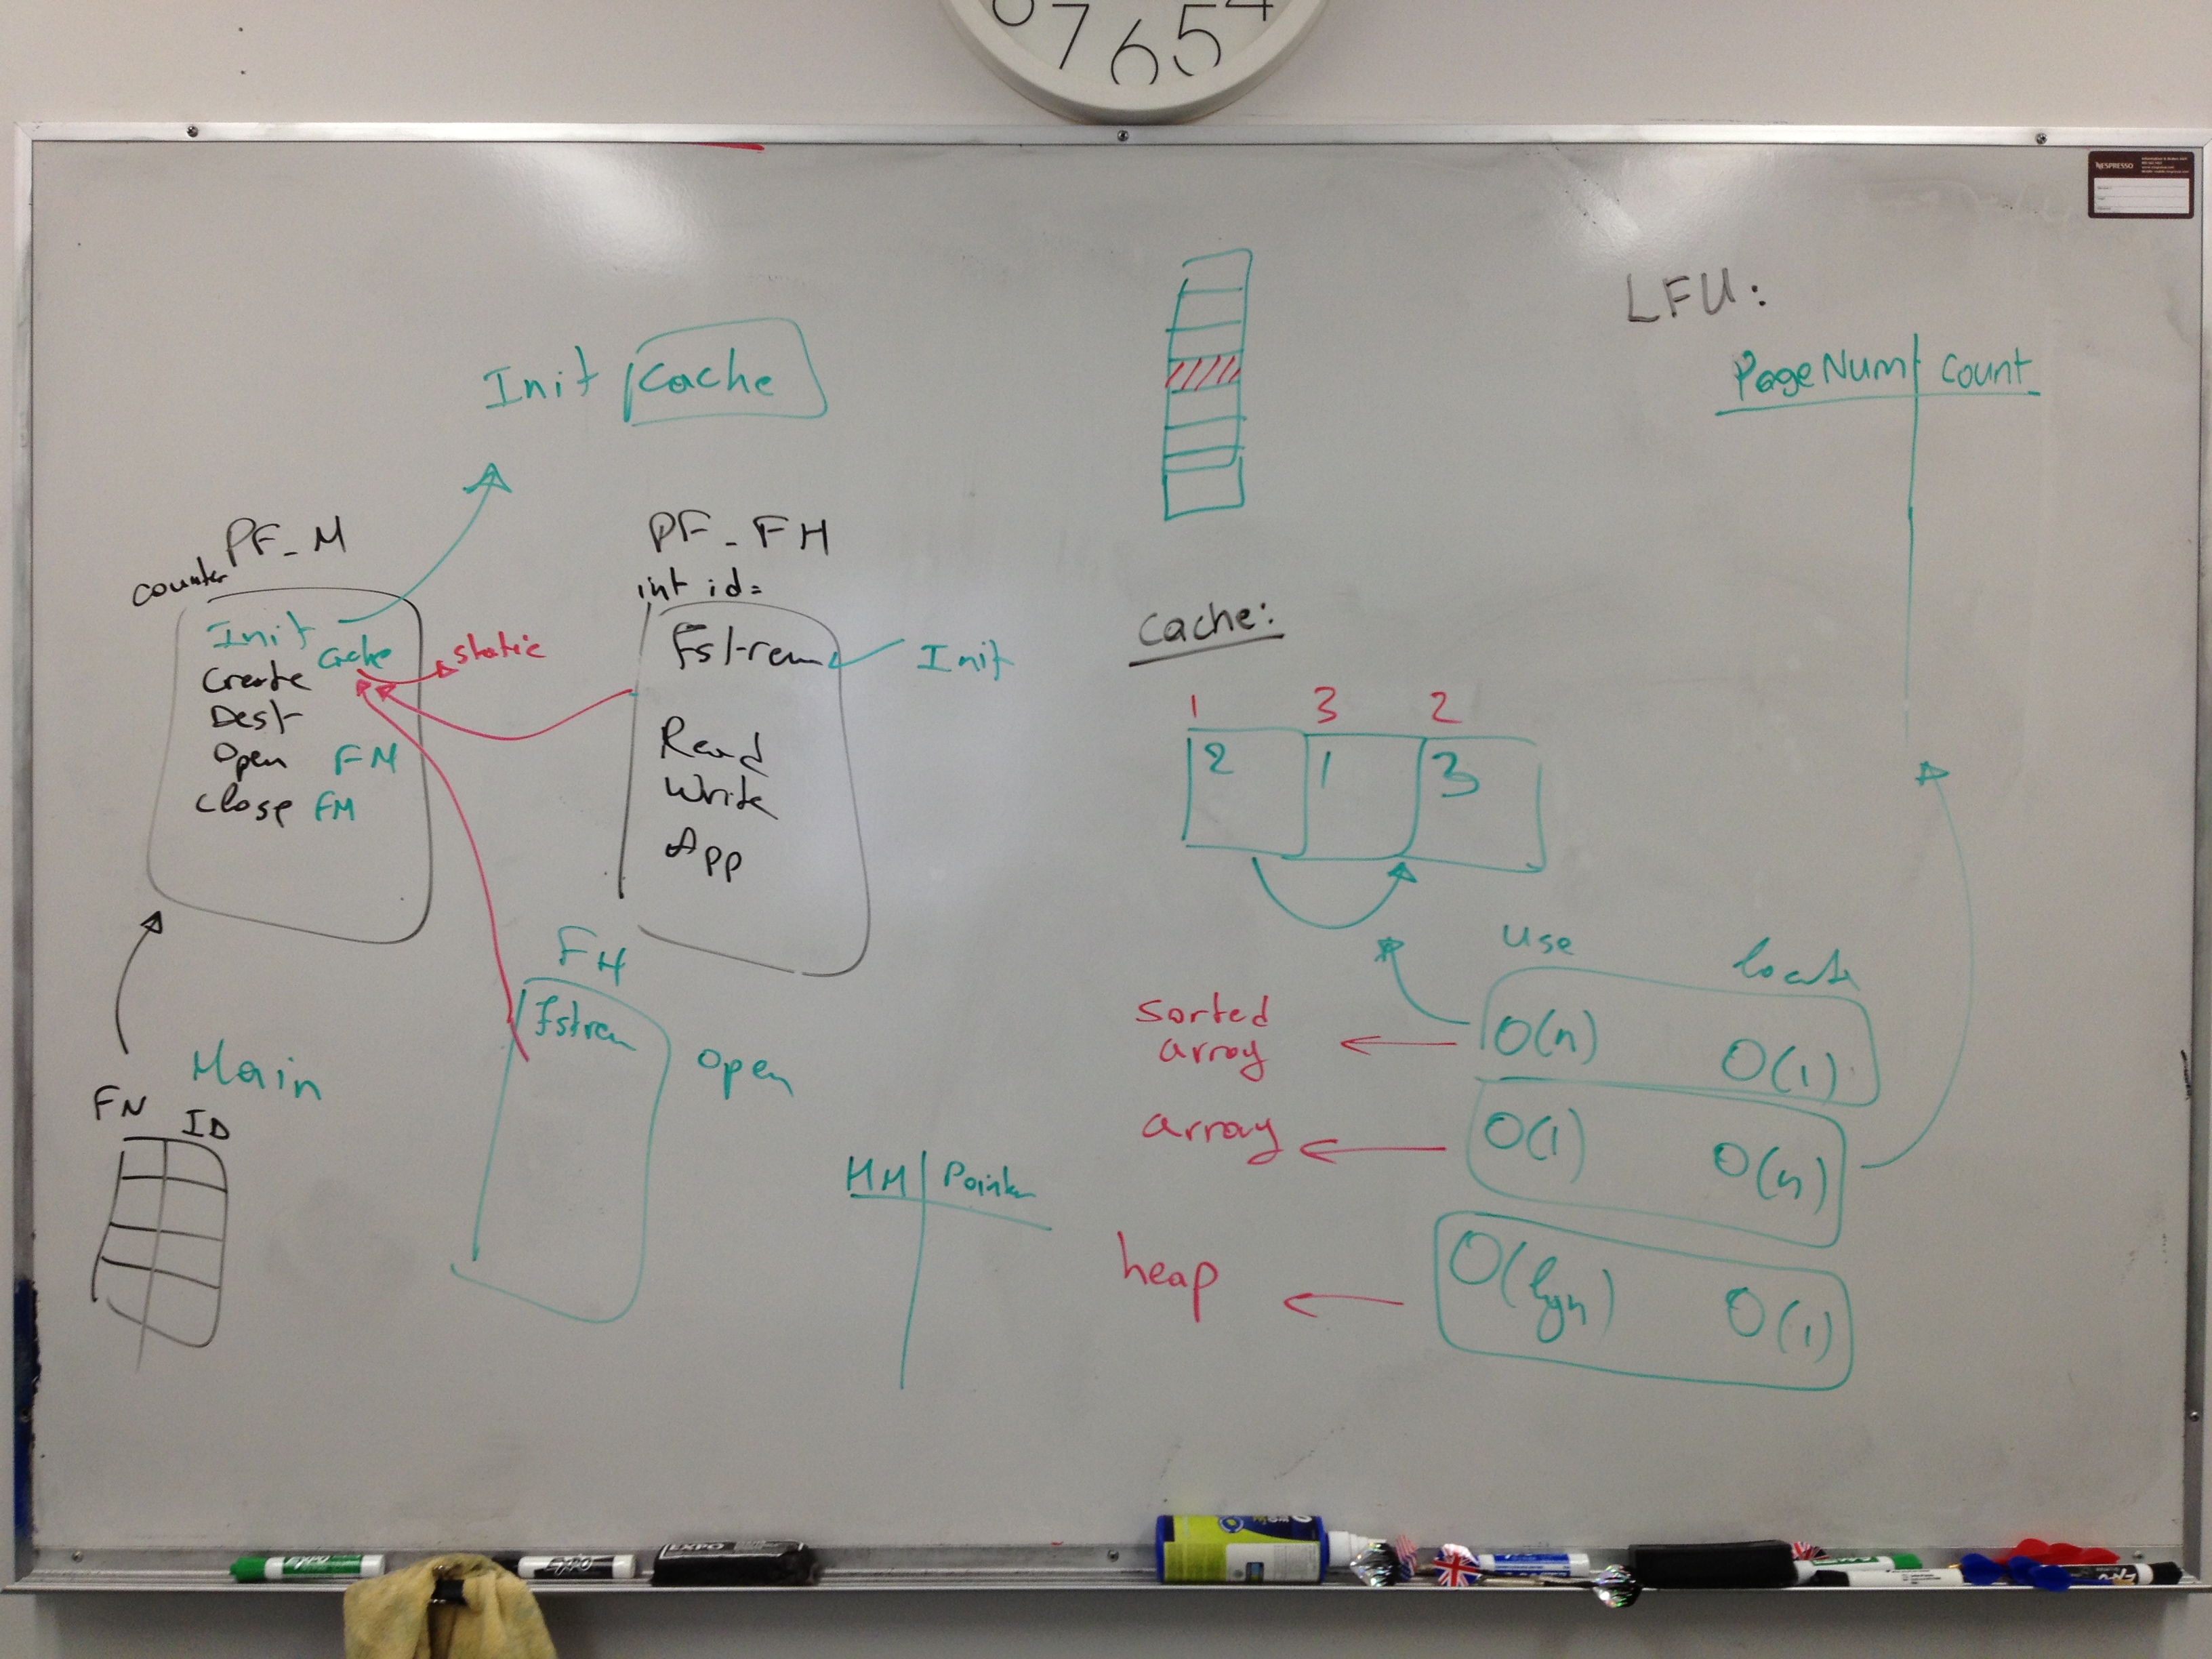 7 6 5 4
NESPRESSO
Init Cache
PF_M
counter
Init
Cache
static
Create
Dest
Open FM
Close FM
PF_FH
int id=
Fstream
Init
Read
Write
App
FH
Fstream
Open
Main
FN ID
HM Pointer
LFU:
PageNum Count
Cache:
1 3 2
2 1 3
use locate
sorted
array
O(n) O(1)
array
O(1) O(n)
heap
O(lgn) O(1)
EXPO
EXPO
EXPO